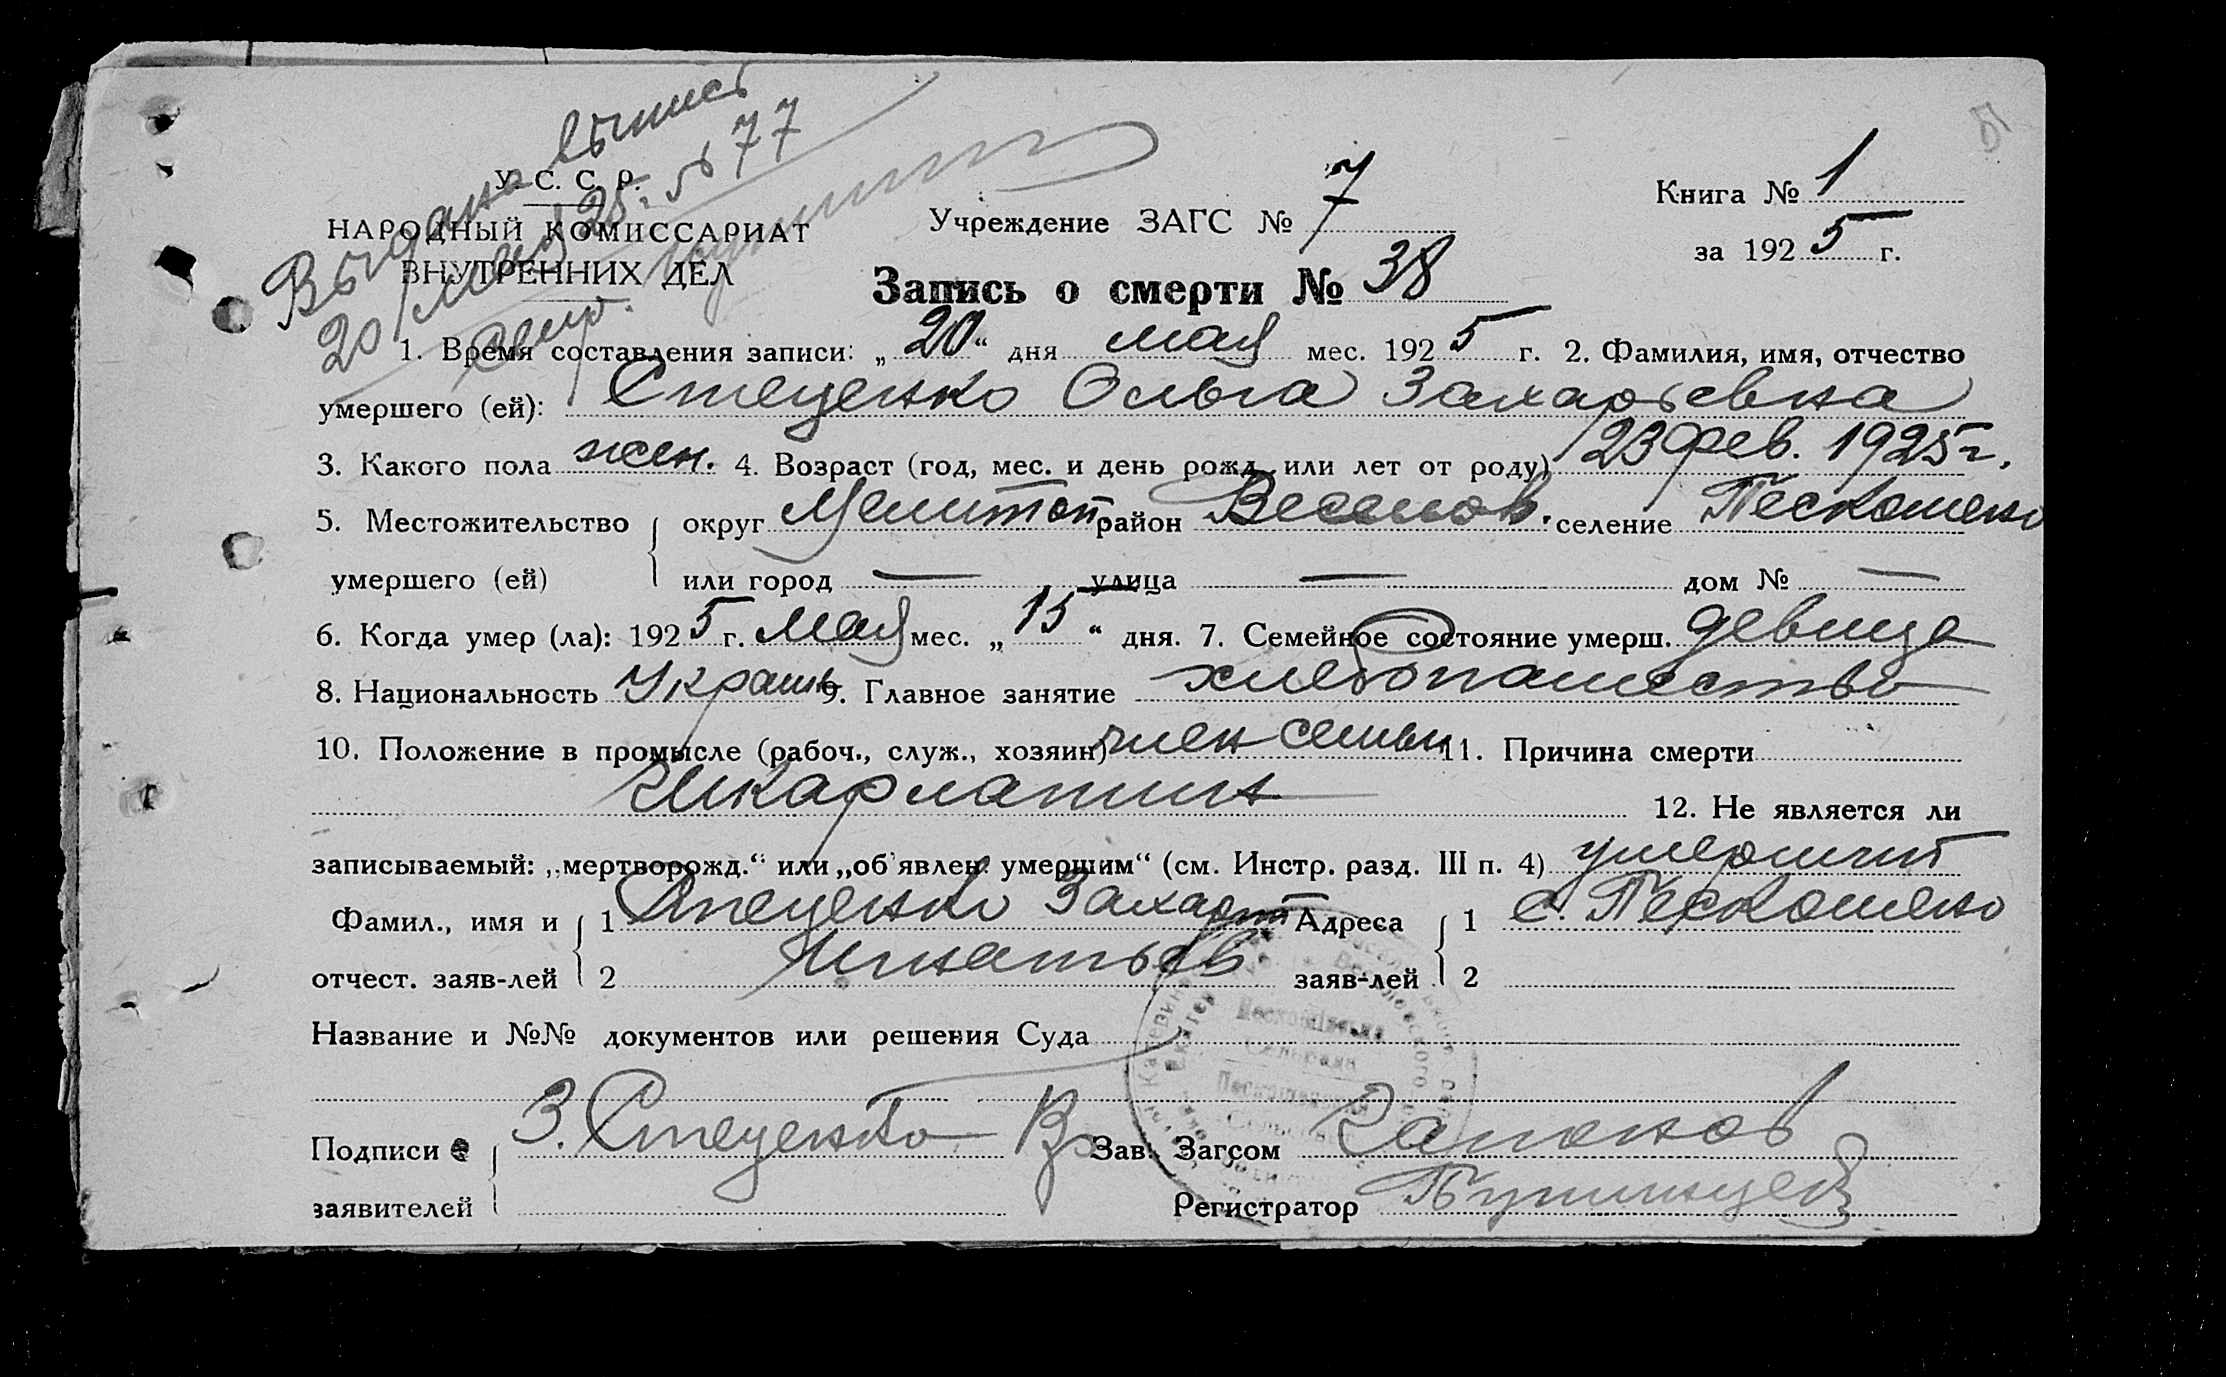 Выдана выпись
20/мая 25. № 77
У. С. С. Р.
НАРОДНЫЙ КОМИССАРИАТ
ВНУТРЕННИХ ДЕЛ
Учреждение ЗАГС № 7
Книга № 1
за 1925 г.
Запись о смерти № 38
1. Время составления записи: „20“ дня мая мес. 1925 г. 2. Фамилия, имя, отчество
умершего (ей): Стеценко Ольга Захарьевна
3. Какого пола жен. 4. Возраст (год, мес. и день рожд. или лет от роду) 23 фев. 1925 г.
5. Местожительство { округ Мелитоп. район Веселов. селение Пескошено
умершего (ей) или город — улица — дом № —
6. Когда умер (ла): 1925 г. Мая мес. „15“ дня. 7. Семейное состояние умерш. девица
8. Национальность Украин 9. Главное занятие хлебопашество
10. Положение в промысле (рабоч., служ., хозяин) член семьи 11. Причина смерти
Шкарлатин 12. Не является ли
записываемый: „мертворожд.“ или „об'явлен умершим“ (см. Инстр. разд. III п. 4) умерший
Фамил., имя и { 1 Стеценко Захарий Адреса { 1 с. Пескошено
отчест. заяв-лей 2 Игнатьев заяв-лей 2
Название и №№ документов или решения Суда
Подписи { З. Стеценко Зав. Загсом
заявителей Регистратор
Сельрада